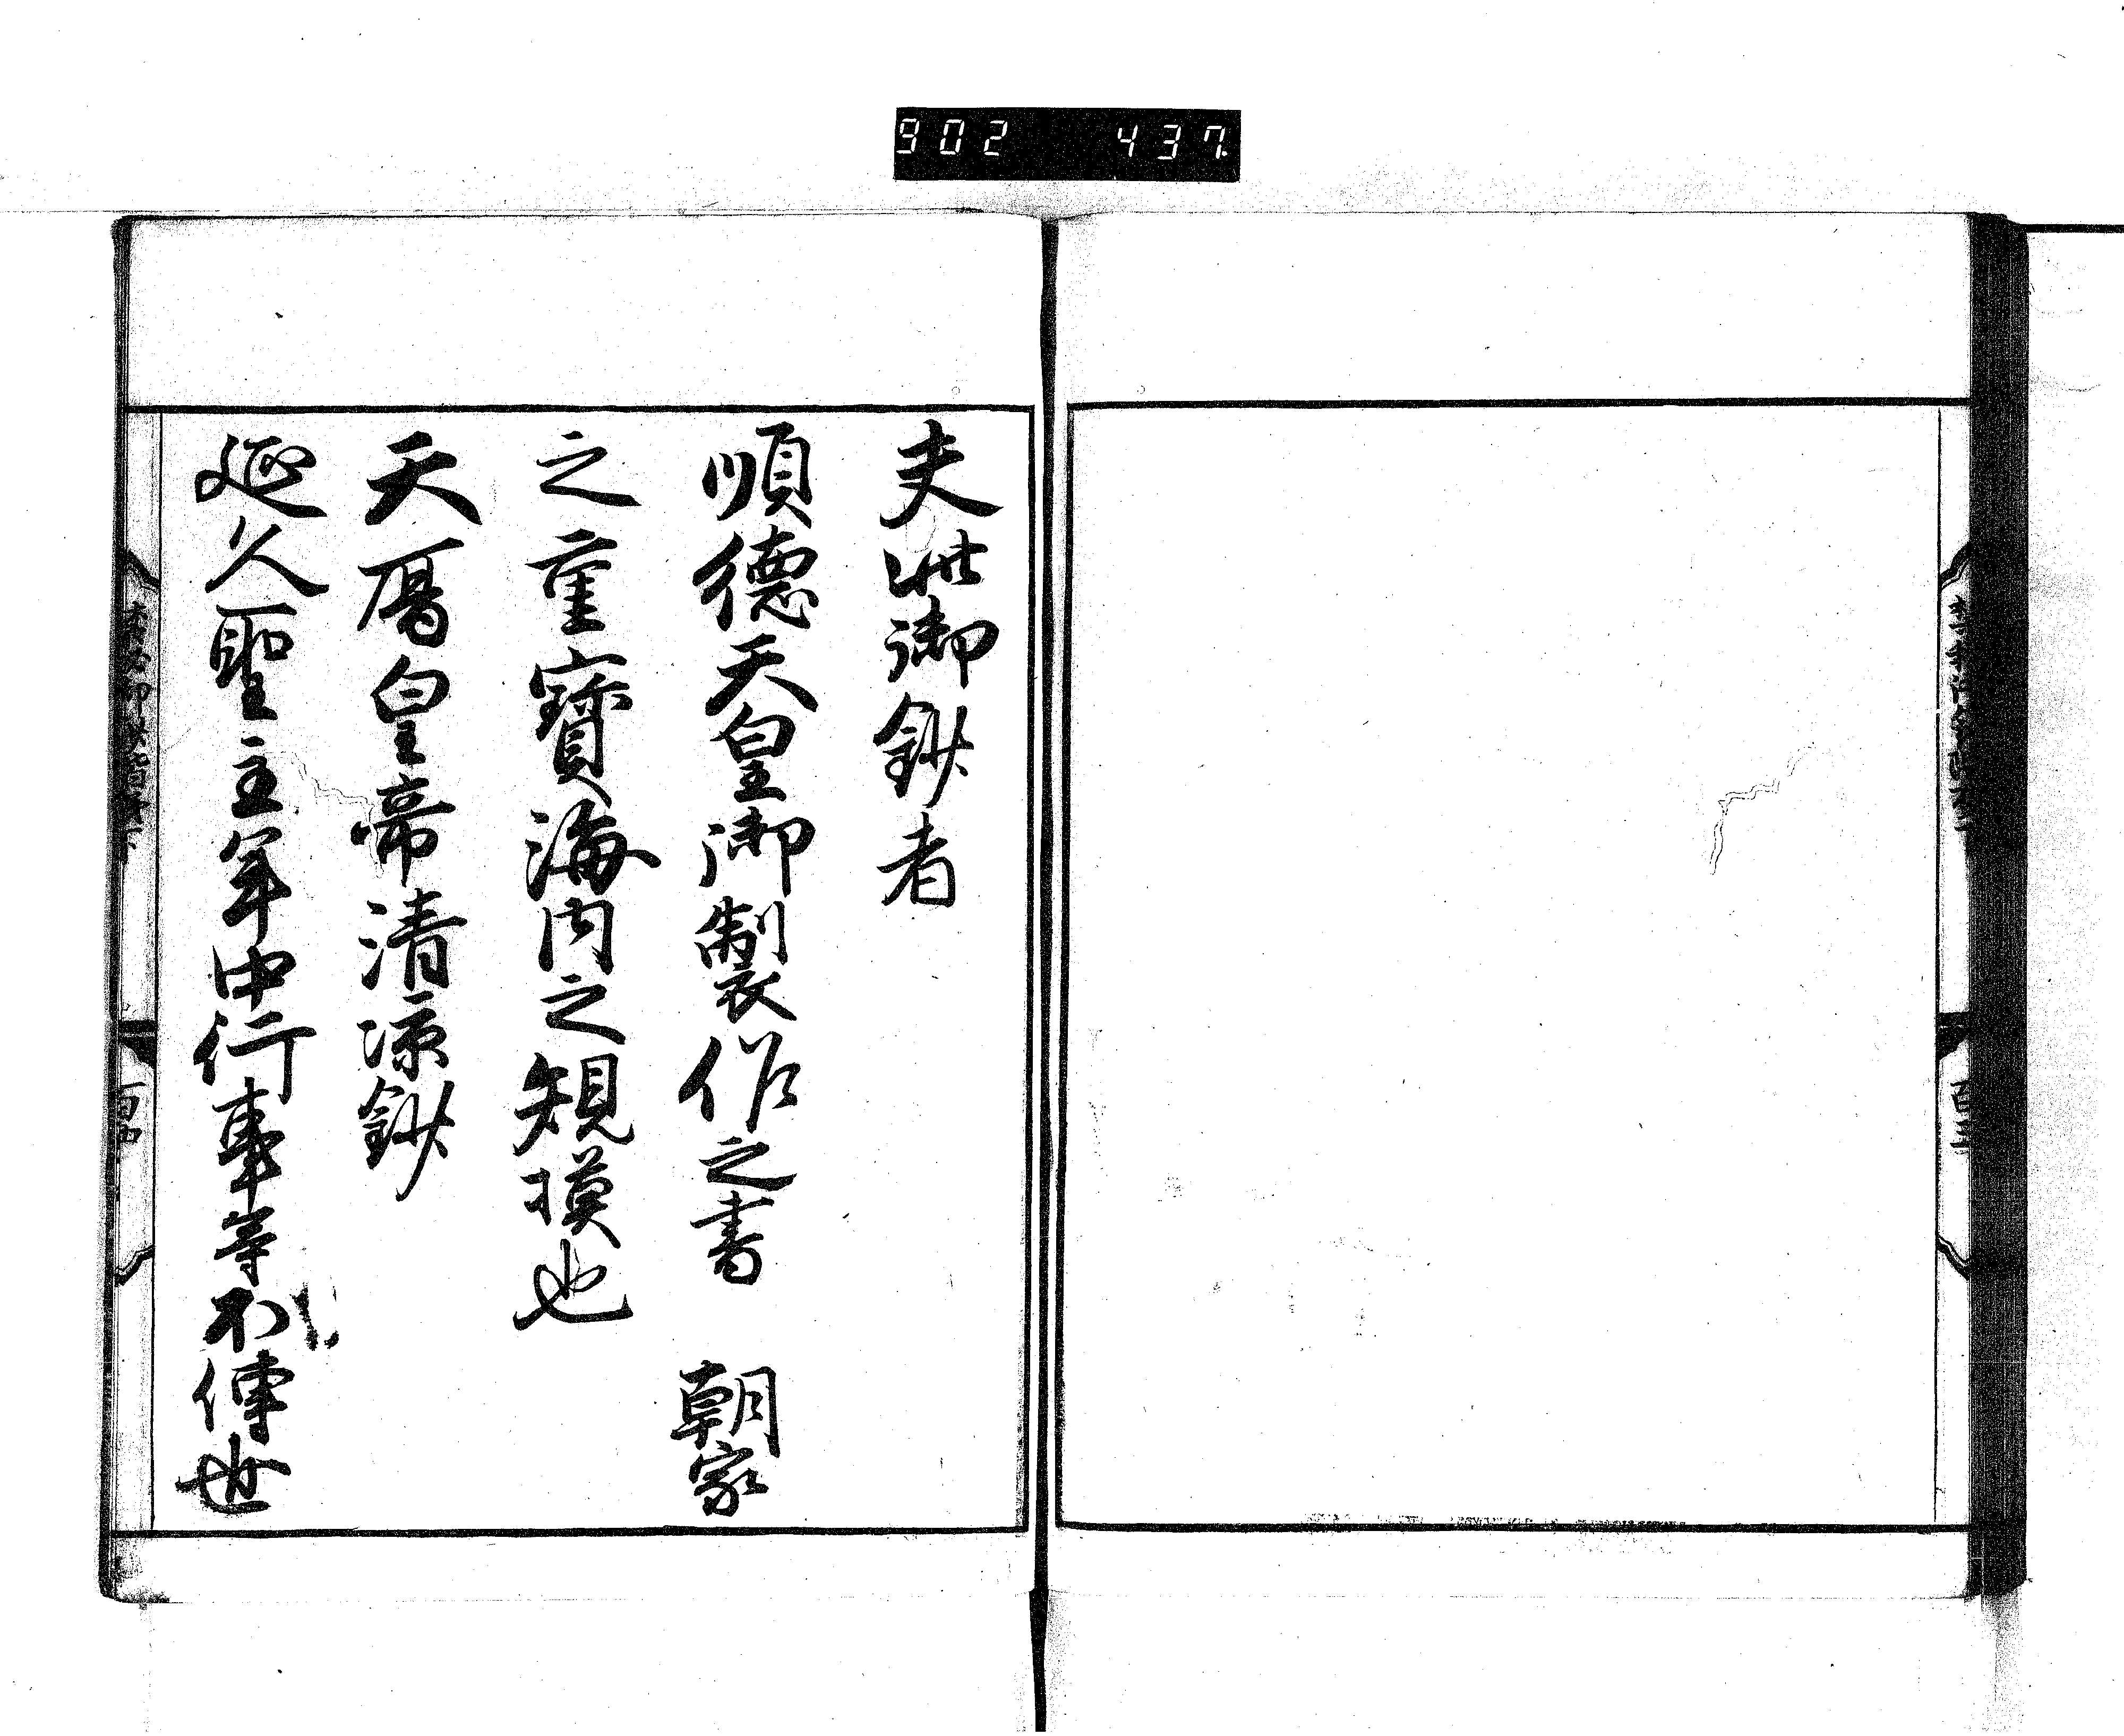 902 437
夫此御鈔者
順德天皇御製作之書　朝家
之重寳海内之規摸也
天曆皇帝清凉鈔
延久聖主年中行事等不傳世